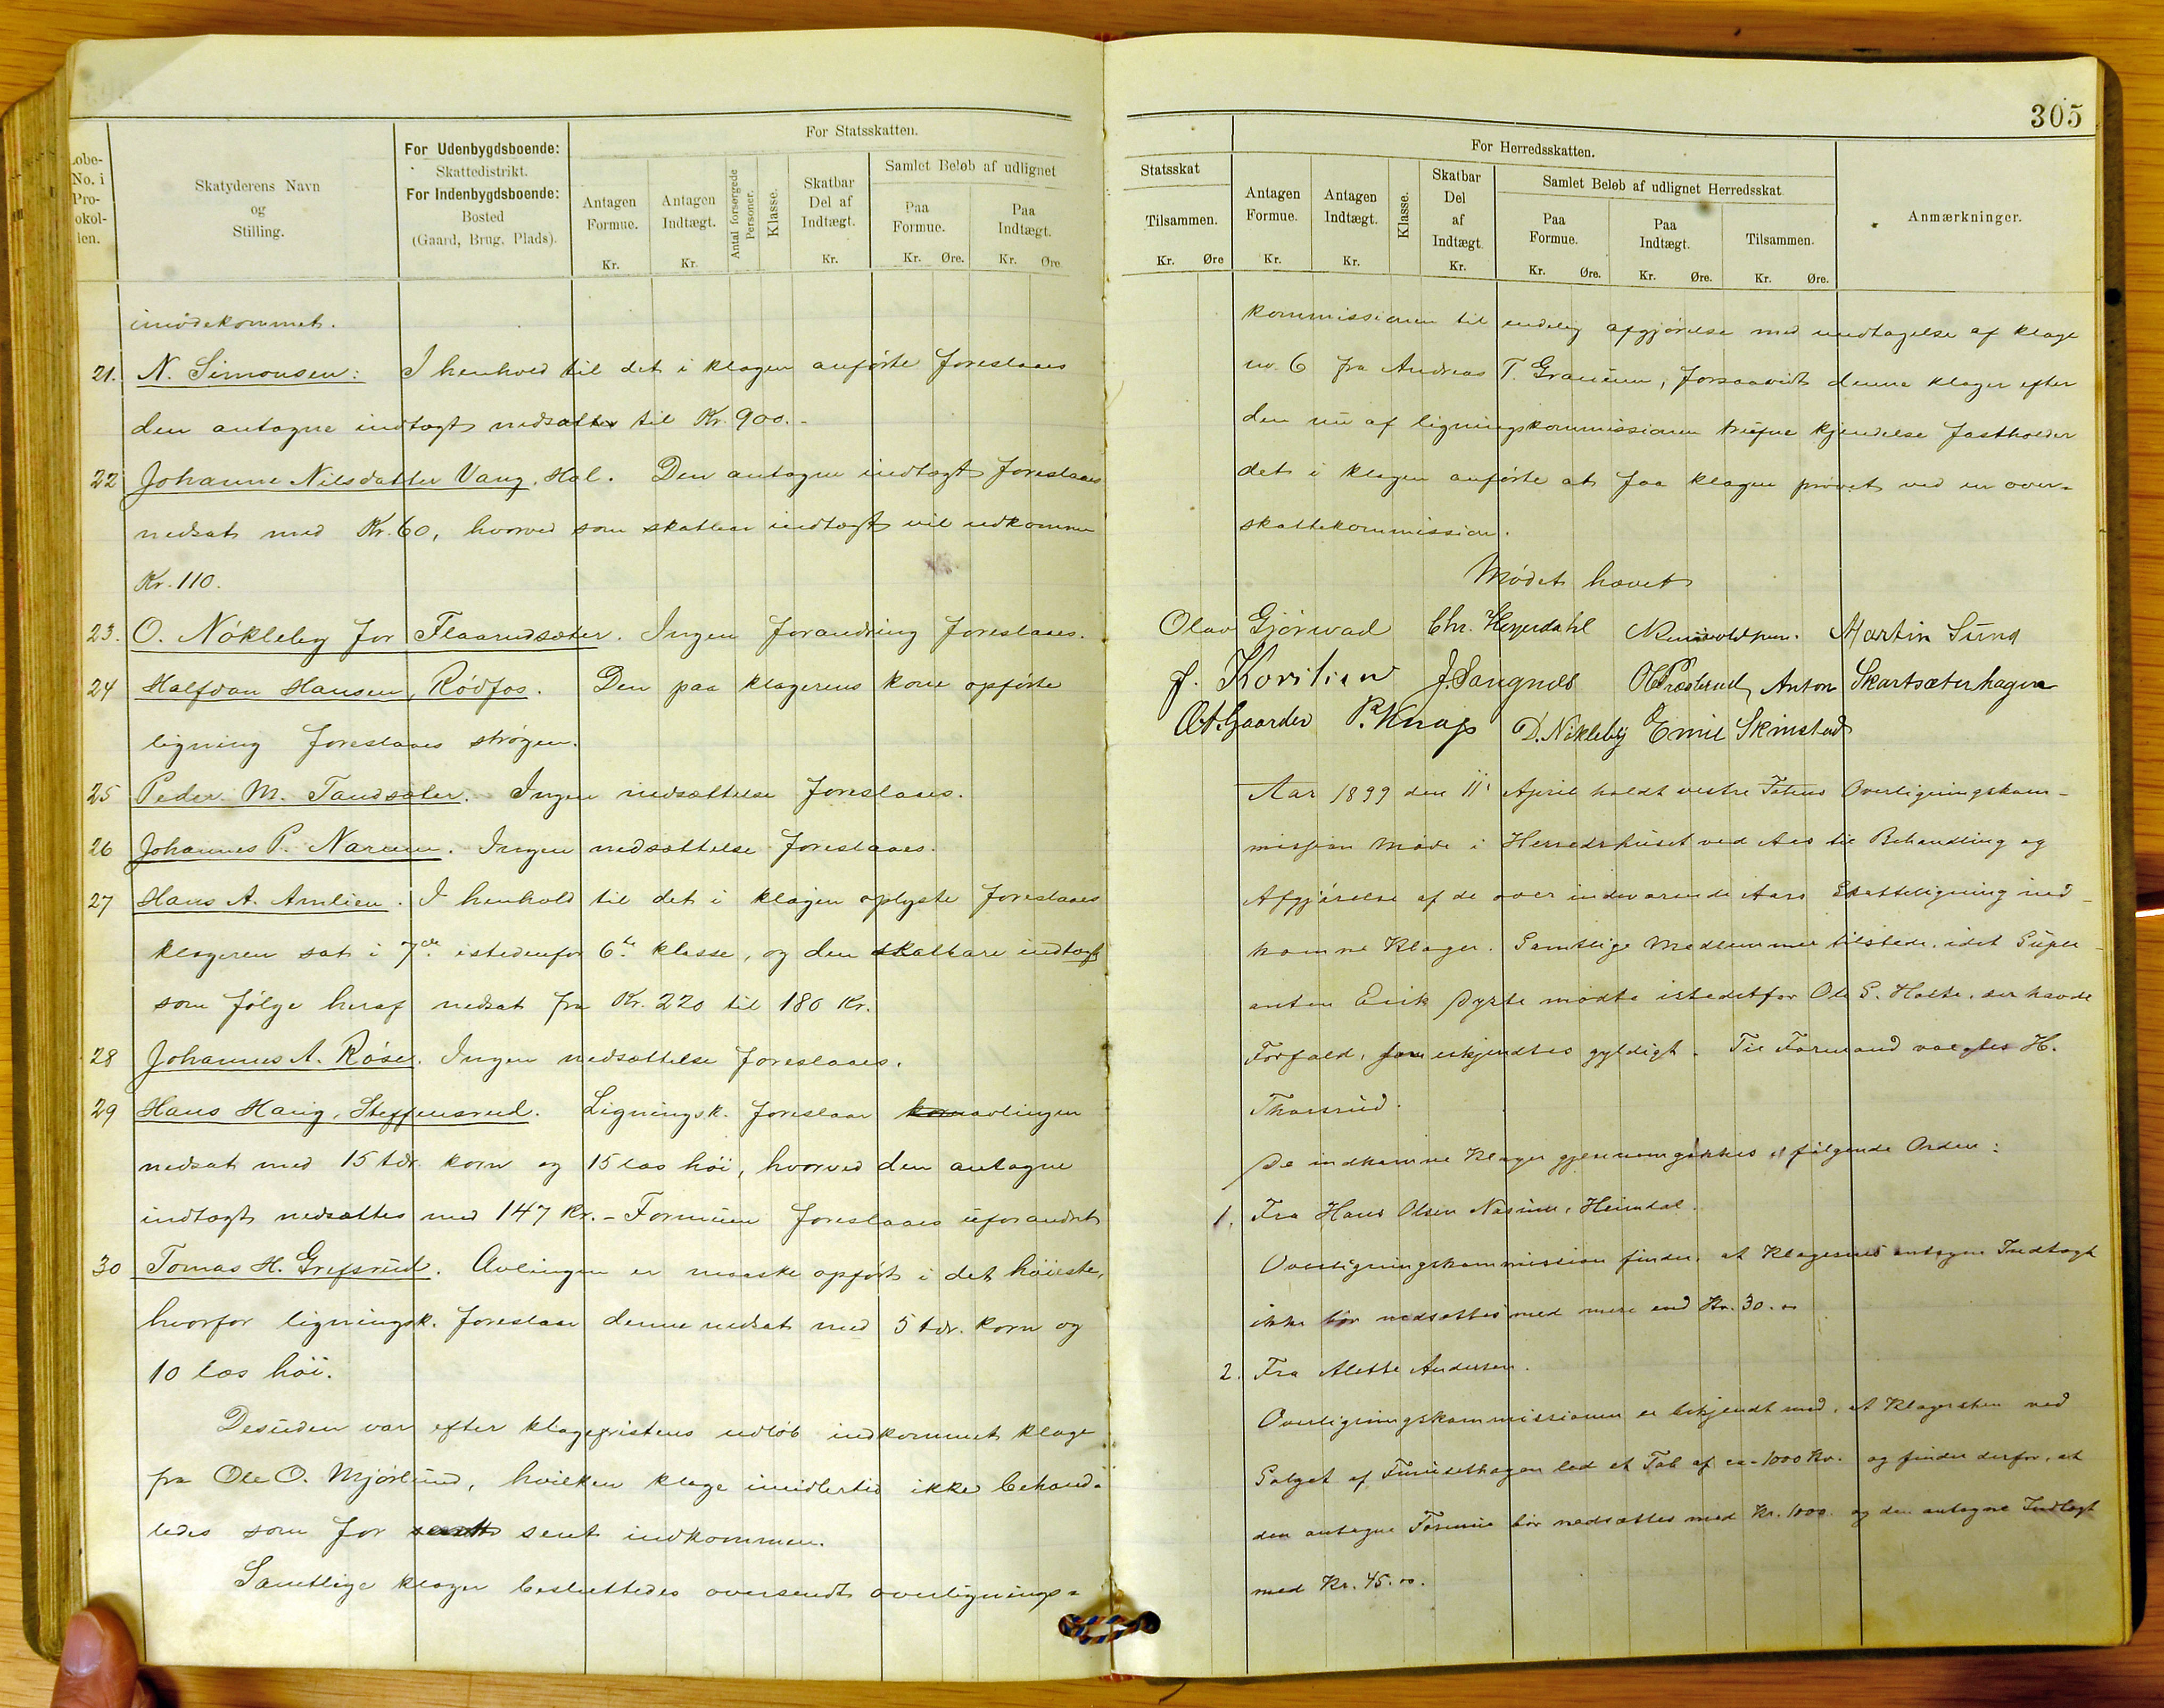 305
For Statsskatten.
Løbe-
No. i
Pro-
tokol-
len.
Skatyderens Navn
og
Stilling.
For Udenbygdsboende:
Skattedistrikt.
For Indenbygdsboende:
Bosted
(Gaard, Brug, Plads).
Antagen
Formue.
Kr.
Antagen
Indtægt.
Kr.
Antal forsørgede
Personer.
Klasse.
Skatbar
Del af
Indtægt.
Kr.
Samlet Beløb af udlignet
Paa
Formue.
Kr. Øre.
Paa
Indtægt.
Kr. Øre.
imødekommet.
21. N. Simonsen: I henhold til det i klagen anførte foreslaaes
den antagne indtægt nedsættes til Kr. 900.-
22 Johanne Nilsdatter Vang, Høl. Den antagne indtægt foreslaaes
nedsat med Kr. 60, hvorved som skatbar indtægt vil udkomme
Kr. 110.
23. O. Nøkleby for Flaarudsæter. Ingen forandring foreslaaes.
24 Halfdan Hansen, Rødfos. Den paa klagerens kone opførte
ligning foreslaaes strøgen.
25 Peder M. Tandsæter. Ingen nedsættelse foreslaaes.
26 Johannes P. Narum. Ingen nedsættelse foreslaaes.
27 Hans A. Amlien. I henhold til det i klagen oplyste foreslaaes
klageren sat i 7de istedenfor 6te klasse, og den skatbare indtægt
som følge heraf nedsat fra Kr. 220 til 180 Kr.
28 Johannes A. Røise. Ingen nedsættelse foreslaaes.
29 Hans Haug, Steffensrud. Ligningsk. foreslaar avlingen
nedsat med 15 tdr. korn og 15 læs høi, hvorved den antagne
indtægt nedsættes med 147 Kr. - Formuen foreslaaes uforandret
30 Tomas H. Grefsrud. Avlingen er maaske opført i det høieste,
hvorfor ligningsk. foreslaar denne nedsat med 5 tdr. korn og
10 læs høi.
Desuden var efter klagefristens udløb indkommet klage
fra Ole O. Mjørlund, hvilken klage imidlertid ikke behand-
ledes som for sent indkommen.
Samtlige klager besluttedes oversendt overlignings-
Statsskat
Tilsammen.
Kr. Øre
For Herredsskatten.
Antagen
Formue.
Kr.
Antagen
Indtægt.
Kr.
Klasse.
Skatbar
Del
af
Indtægt.
Kr.
Samlet Beløb af udlignet Herredsskat
Paa
Formue.
Kr. Øre.
Paa
Indtægt.
Kr. Øre.
Tilsammen.
Kr. Øre.
Anmærkninger.
kommissionen til endelig afgjørelse med undtagelse af klage
no. 6 fra Andreas T. Granum, forsaavidt denne klager efter
den nu af ligningskommissionen trufne kjendelse fastholder
det i klagen anførte at faa klagen prøvet ved en over-
skattekommission.
Mødet hævet
Olav Gjørwad Chr. Heyerdahl Martin Sund
J. Sangnæs Anton Skartsæterhagen
O.A. Gaarder P. Knap D. Nøkleby Emil Skinstad
Aar 1899 den 11. April holdt vestre Totens Overligningskom-
mission Møde i Herredshuset ved Aas til Behandling og
Afgjørelse af de over indeværende Aars Skatteligning ind-
komne Klager. Samtlige Medlemmer tilstede, idet Suple-
anten Erik Dyste mødte istedetfor Ole G. Holte, der havde
Forfald, erkjendtes gyldigt. Til Formand valgtes H.
Thorsrud.
De indkomne Klager gjennemgikkes i følgende Orden:
1. Fra Hans Olsen Narum, Heimdal.
Overligningskommission finder, at Klagerens antagne Indtægt
ikke bør nedsættes med mere end Kr. 30.00
2. Fra Alette Andersen.
Overligningskommissionen er bekjendt med, at Klagersken ved
Salget af Furusethagen led et Tab af ca. 1000 Kr. og finder derfor, at
den antagne Formue bør nedsættes med Kr. 1000. og den antagne Indtægt
med Kr. 45.00.